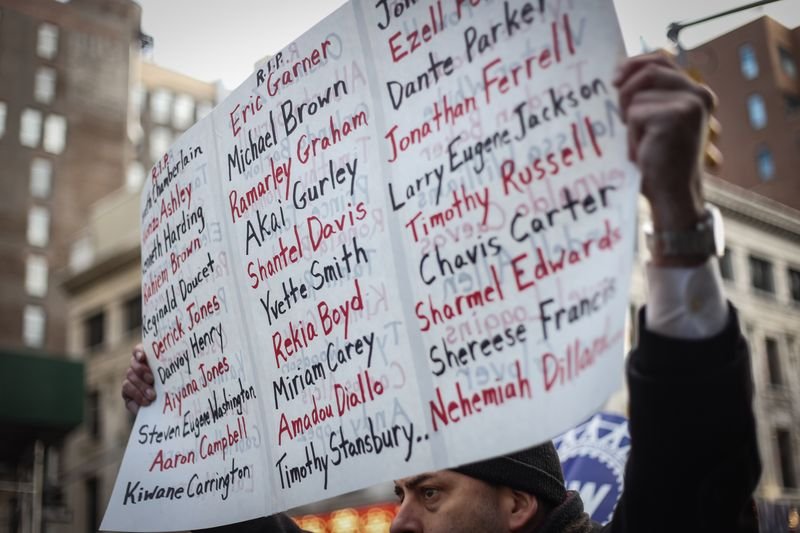 R.I.P.
Chamberlain
Ashley
Kenneth Harding
Raheim Brown
Reginald Doucet
Derrick Jones
Danvoy Henry
Aiyana Jones
Steven Eugene Washington
Aaron Campbell
Kiwane Carrington
R.I.P.
Eric Garner
Michael Brown
Ramarley Graham
Akai Gurley
Shantel Davis
Yvette Smith
Rekia Boyd
Miriam Carey
Amadou Diallo
Timothy Stansbury..
Ezell
Dante Parker
Jonathan Ferrell
Larry Eugene Jackson
Timothy Russell
Chavis Carter
Sharmel Edwards
Shereese Francis
Nehemiah Dillard...